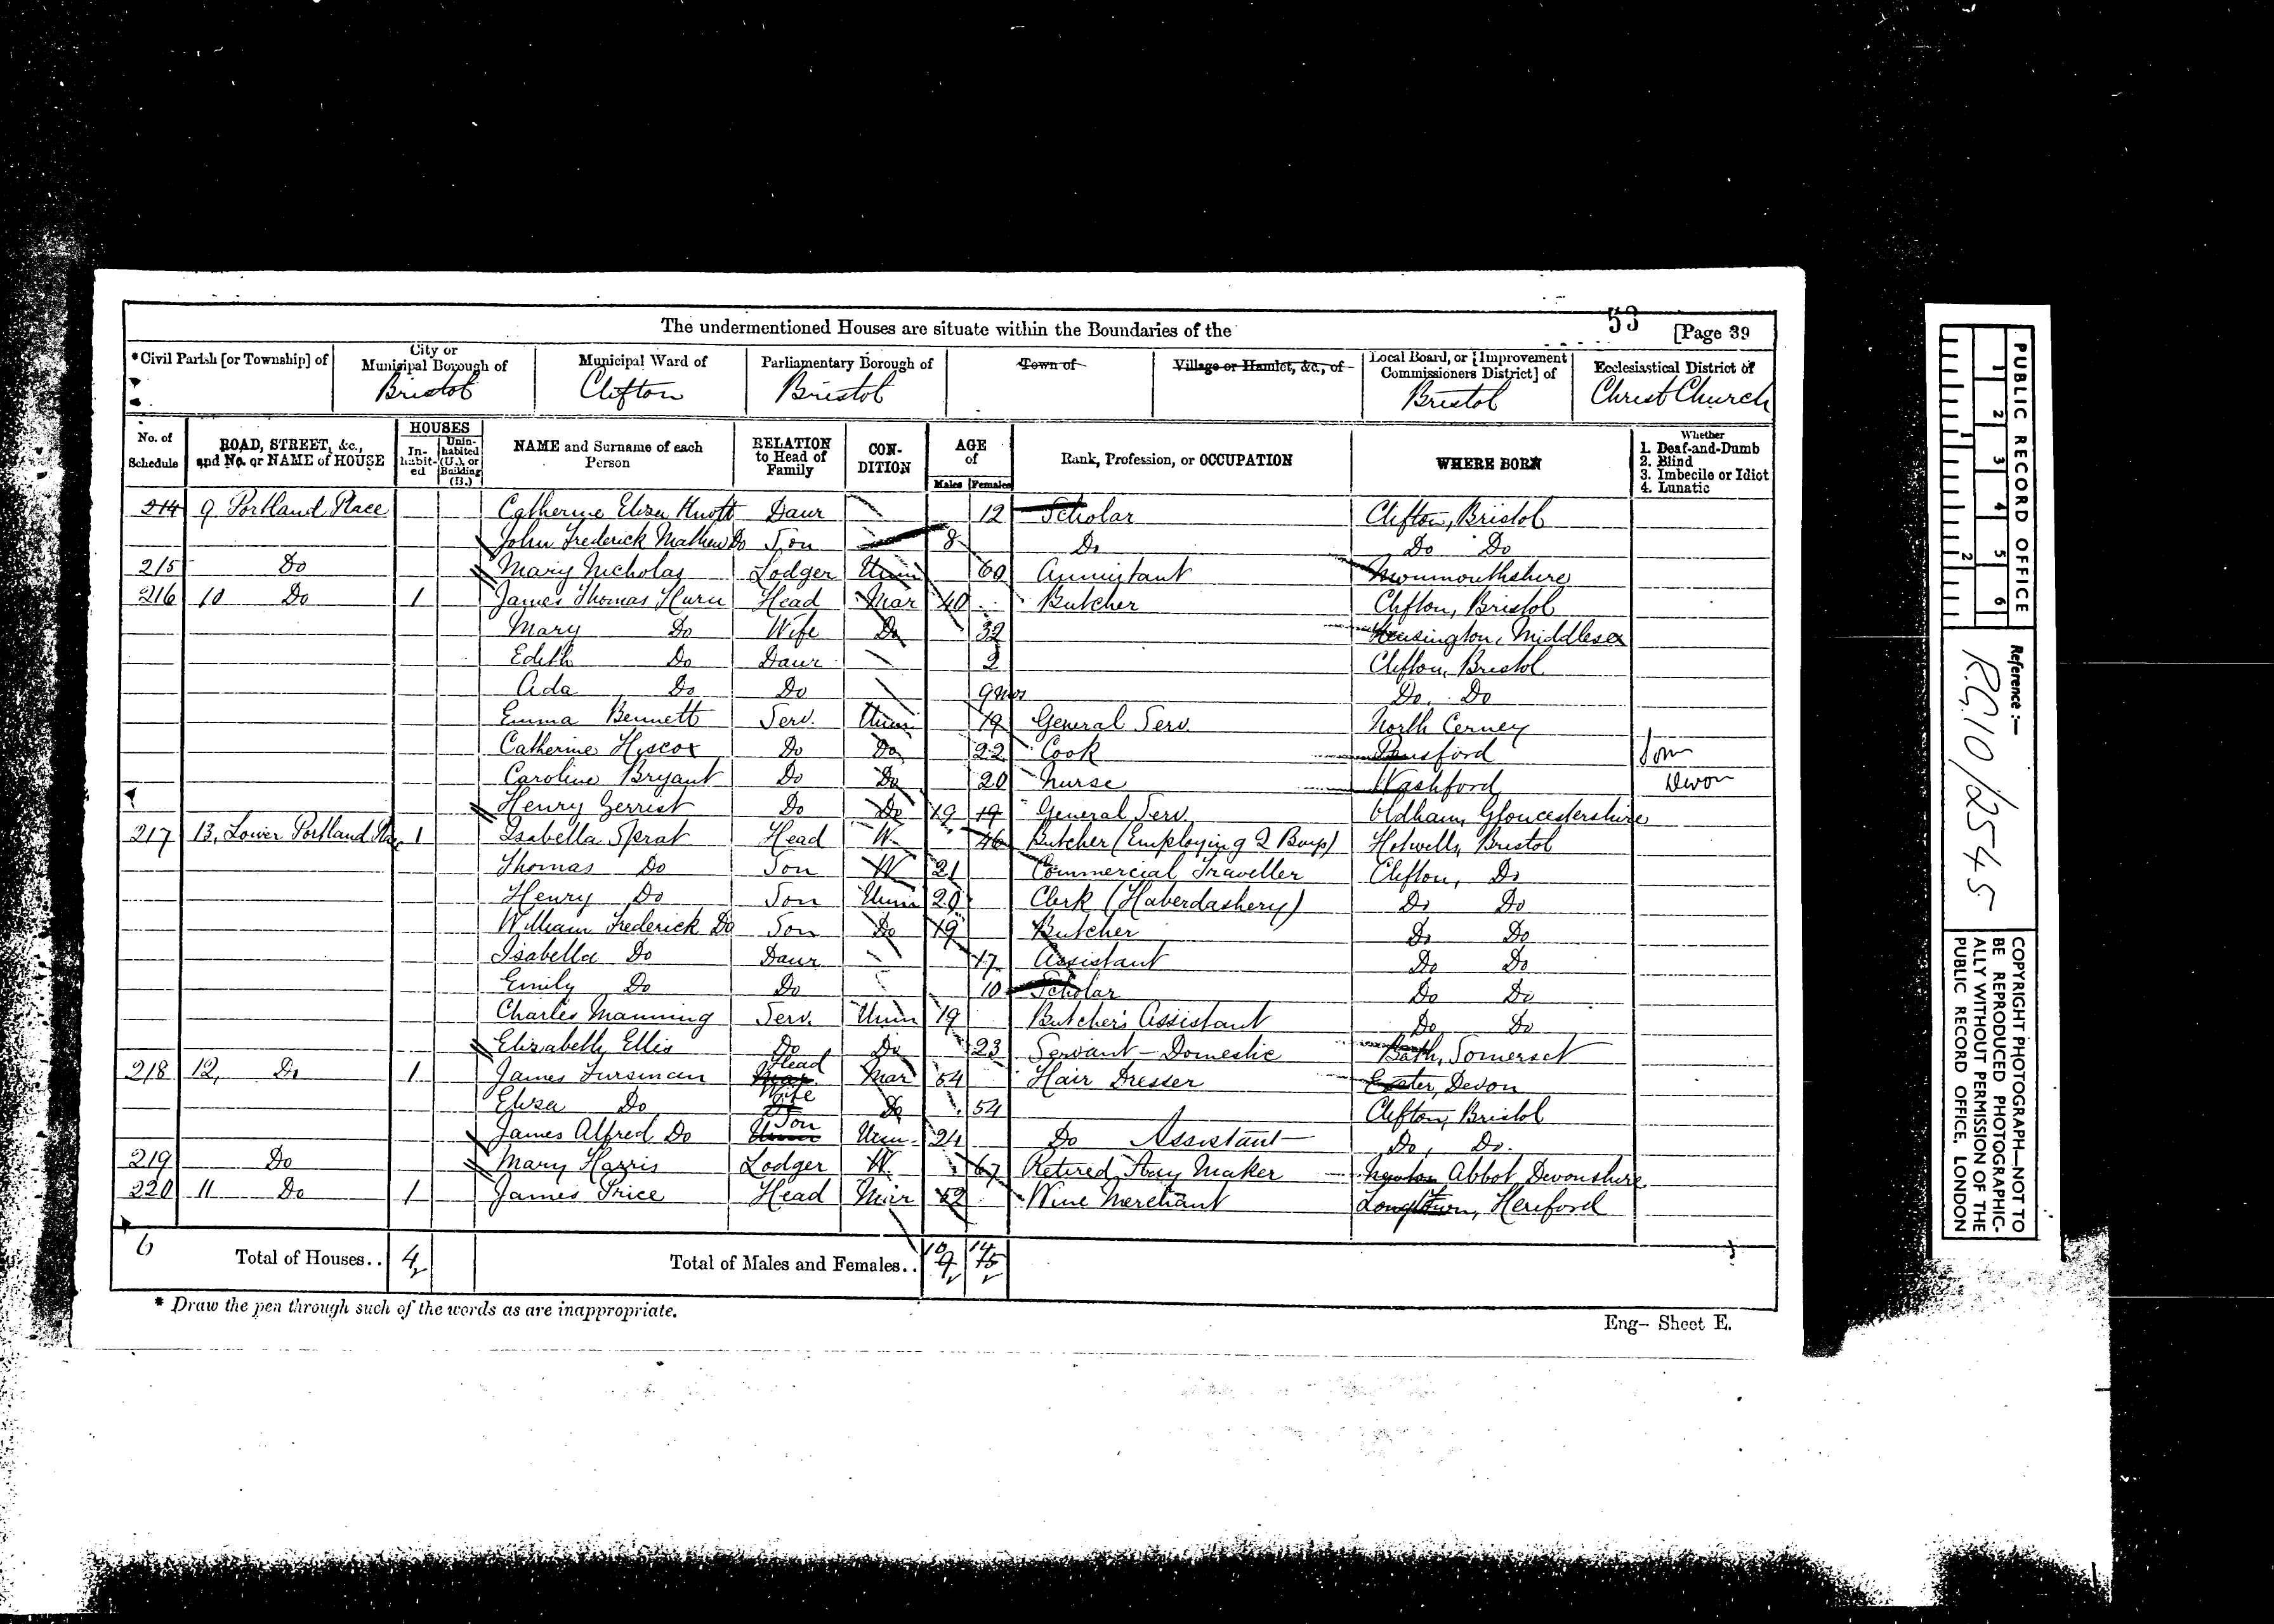 The undermentioned Houses are situate within the Boundaries of the 53 [Page 39
*Civil Parish [or Township] of
City or Municipal Borough of
Bristol
Municipal Ward of
Clifton
Parliamentary Borough of
Bristol
Town of
Village or Hamlet, &c., of
Local Board, or [Improvement Commissioners District] of
Bristol
Ecclesiastical District of
Christ Church
No. of Schedule
ROAD, STREET, &c., and No. or NAME of HOUSE
HOUSES
In-habit-ed
Unin-habited (U.), or Building (B.)
NAME and Surname of each Person
RELATION to Head of Family
CON-DITION
AGE of
Males Females
Rank, Profession, or OCCUPATION
WHERE BORN
Whether
1. Deaf-and-Dumb
2. Blind
3. Imbecile or Idiot
4. Lunatic
214 9 Portland Place Catherine Eliza Knott Daur 12 Scholar Clifton, Bristol
John Frederick Mathew Do Son 8 Do Do Do
215 Do Mary Nicholas Lodger Unm 60 Annuitant Monmouthshire
216 10 Do 1 James Thomas Head Mar 40 Butcher Clifton, Bristol
Mary Do Wife Do 32 Kensington, Middlesex
Edith Do Daur 2 Clifton, Bristol
Ada Do Do 9mos Do Do
Emma Bennett Serv. Unm 19 General Serv North Cerney
Catherine Hiscox Do Do 22 Cook Pensford Som
Caroline Bryant Do Do 20 Nurse Washford Devon
Henry Gerrist Do Do 19 19 General Serv Oldham, Gloucestershire
217 13, Lower Portland Place 1 Isabella Sprat Head W. 46 Butcher (Employing 2 Boys) Hotwells, Bristol
Thomas Do Son W 21 Commercial Traveller Clifton, Do
Henry Do Son Unm 20 Clerk (Haberdashery) Do Do
William Frederick Do Son Do 19 Butcher Do Do
Isabella Do Daur 17 Assistant Do Do
Emily Do Do 10 Scholar Do Do
Charles Manning Serv. Unm 19 Butcher's Assistant Do Do
Elizabeth Ellis Do Do 23 Servant - Domestic Bath, Somerset
218 12, Do 1 James Fursman Head Mar 54 Hair Dresser Exeter, Devon
Eliza Do Wife Do 54 Clifton, Bristol
James Alfred Do Son Unm 24 Do Assistant Do, Do.
219 Do Mary Harris Lodger W. 67 Retired Stay Maker Newton Abbot Devonshire
220 11 Do 1 James Price Head Mar 52 Wine Merchant Longtown, Hereford
6 Total of Houses.. 4 Total of Males and Females.. 10 9 14 15
* Draw the pen through such of the words as are inappropriate.
Eng- Sheet E.
PUBLIC RECORD OFFICE
1 2 3 4 5 6
1 2
Reference :-
R.G. 10/2545
COPYRIGHT PHOTOGRAPH—NOT TO
BE REPRODUCED PHOTOGRAPHIC-
ALLY WITHOUT PERMISSION OF THE
PUBLIC RECORD OFFICE, LONDON